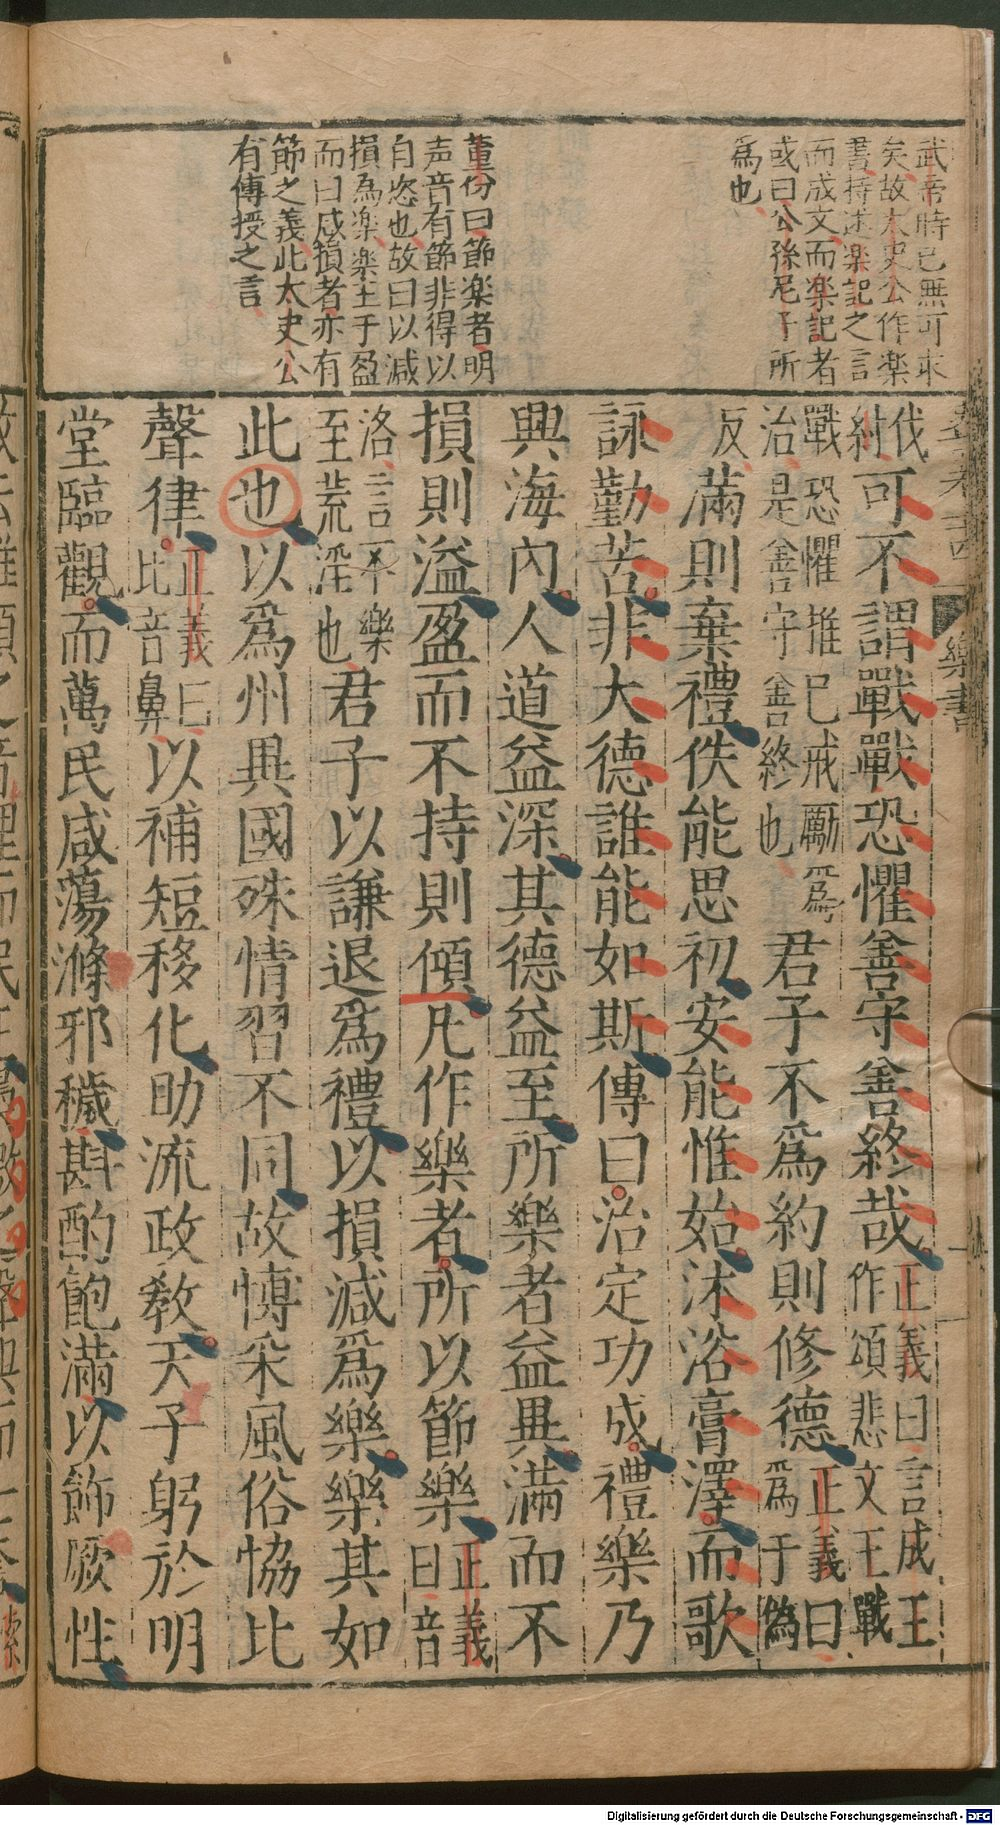 武帝時已無可求
矣故太史公作楽
書持述楽記之言
而成文而楽記者
或曰公孫尼子所
為也
董份曰節楽者明
声音有節非得以
自恣也故曰以減
損為楽楽主于盈
而曰減損者亦有
節之義此太史公
有傳授之言
樂書
伐紂可不謂戰戰恐懼善守善終哉正義曰言成王作頌悲文王戰
戰恐懼推已戒勵爲治是善守善終也君子不爲約則修德正義曰爲于僞
反滿則棄禮佚能思初安能惟始沐浴膏澤而歌
詠勤苦非大德誰能如斯傳曰治定功成禮樂乃
興海內人道益深其德益至所樂者益異滿而不
損則溢盈而不持則傾凡作樂者所以節樂正義曰音
洛言不樂至荒淫也君子以謙退爲禮以損減爲樂樂其如
此也以爲州異國殊情習不同故博采風俗恊比
聲律正義曰比音鼻以補短移化助流政教天子躬於明
堂臨觀而萬民咸蕩滌邪穢斟酌飽滿以飾厥性
Digitalisierung gefördert durch die Deutsche Forschungsgemeinschaft - DFG